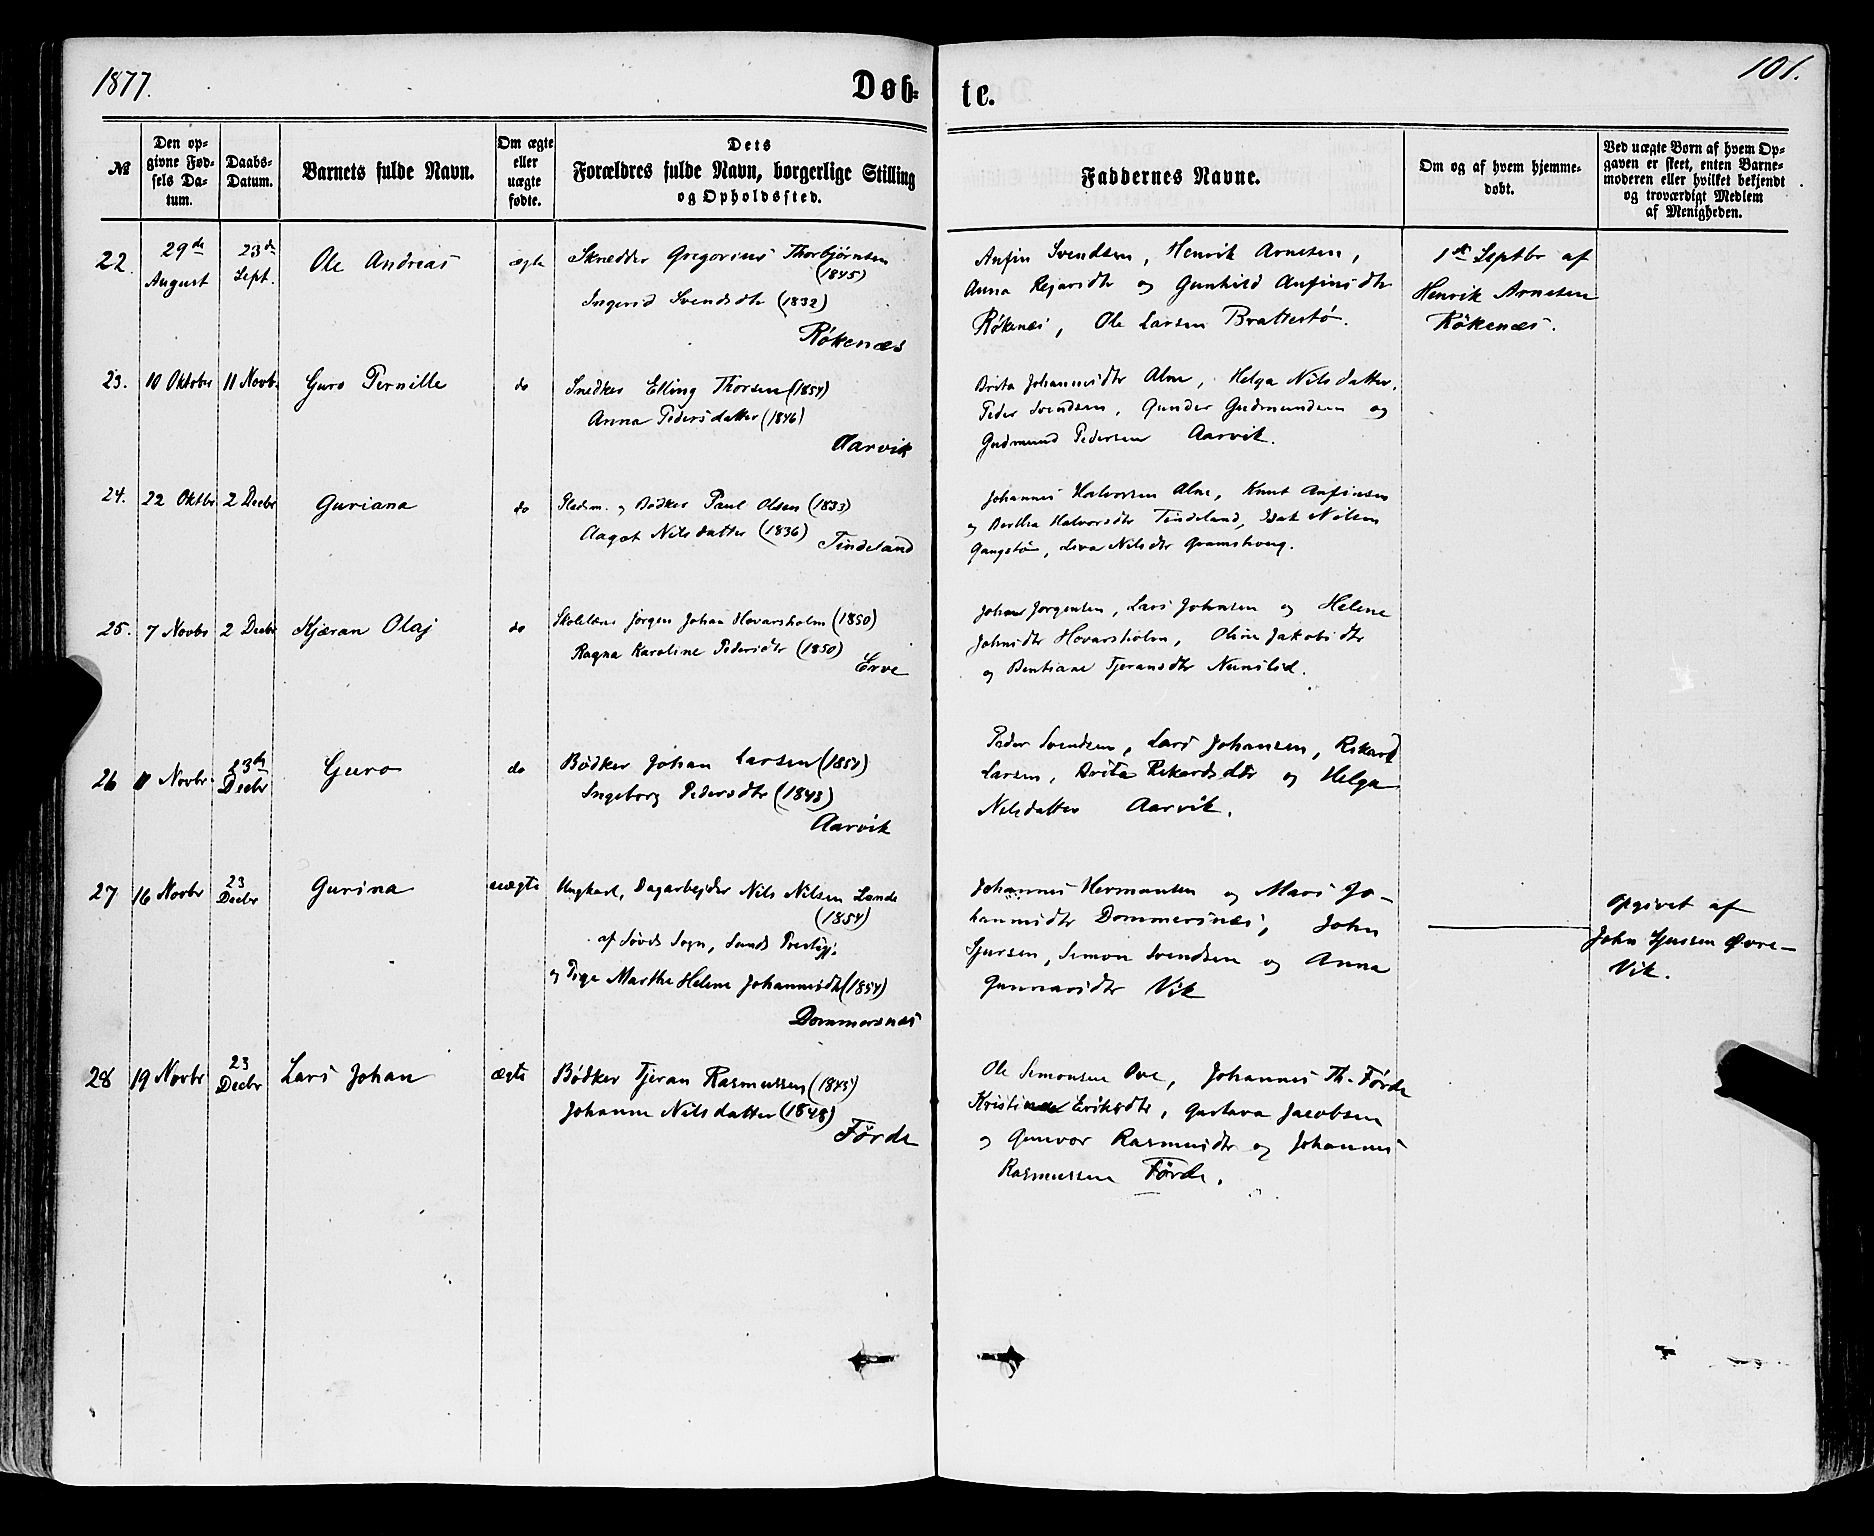 1877.
Døb-
te.
101.
№
Den op-
givne Fød-
sels Da-
tum.
Daabs-
Datum.
Barnets fulde Navn.
Om ægte
eller
uægte
fødte.
Dets
Forældres fulde Navn, borgerlige Stilling
og Opholdssted.
Faddernes Navne.
Om og af hvem hjemme-
døbt.
Ved uægte Børn af hvem Op-
gaven er skeet, enten Barne-
moderen eller hvilket bekjendt
og troværdigt Medlem
af Menigheden.
22.
29de
August
23de
Sept.
Ole Andreas
ægte
Skrædder Gregorius Thorbjørnsen
(1845)
Ingerid Svendsdtr (1832)
Røkenæs
Anfin Svendsen, Henrik Arnesen,
Anna Rejarsdtr og Gunhild Anfinsdtr
Røkenæs, Ole Larsen Brattestø.
1ste Septbr af
Henrik Arnesen
Røkenæs.
23.
10 Oktober
11 Novb.
Guro Pernille
do
Snedker Elling Thorsen (1854)
Anna Pedersdatter (1846)
Aarvik
Brita Johannesdtr Alne, Helga Nilsdatter,
Peder Svendsen, Gunder Gudmundsen og
Gudmund Pedersen Aarvik.
24.
22 Oktbr
2 Decbr
Guriana
do
Pladsm. og Bødker Paul Olsen (1833)
Aagot Nilsdatter (1836)
Tindeland
Johannes Halvorsen Alne, Knut Anfinsen
og Bertha Halvorsdtr Tindeland, Isak Nilsen
Gangstø, Liva Nilsdtr
25.
7 Novbr
2 Decbr
Kjæran Olaj
do
Skolelærer Jørgen Johan Hovarsholm (1850)
Ragna Karoline Pedersdtr (1850)
Erve
Johan Jørgensen, Lars Johnsen og Helene
Johnsdtr Hovarsholm, Oline Jakobsdtr
og Bentiane Tjeransdtr
26
11 Novbr.
23de
Decbr
Guro
do
Bødker Johan Larsen (1851)
Ingeborg Pedersdtr (1843)
Aarvik
Peder Svendsen, Lars Johansen, Rikard
Larsen, Brita Rikardsdtr og Helga
Nilsdatter Aarvik.
27
16 Novbr
23
Decbr
Gurina
uægte
Ungkarl, Dagarbejder Nils Nilsen Lande
(1854)
af Søvde Sogn, Sands Prestegj.
og Pige Marthe Helene Johannesdtr (1854)
Dommersnæs
Johannes Hermansen og Mari Jo-
hannesdtr Dommersnæs, John
Sjursen, Simon Svendsen og Anna
Gunnarsdtr Vik
Opgivet af
John Sjursen Øvre-
Vik.
28
19 Novbr
23
Decbr
Lars Johan
ægte
Bødker Tjeran Rasmussen (1845)
Johanne Nilsdatter (1848)
Førde
Ole Simonsen Ove, Johannes Th. Førde
Eriksdtr, Gustava Jacobsen
og Gunvor Rasmusdtr og Johannes
Rasmussen Førde.